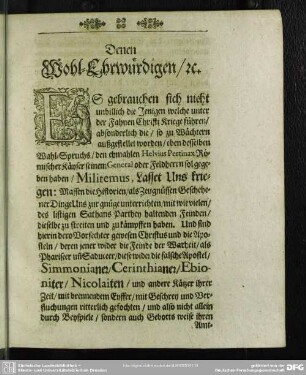 Denen
Wohl-Ehrwürdigen/ ꝛc.
ES gebrauchen sich nicht
unbillich die Jenigen welche unter
der Fahnen Christi Kriege führen/
absonderlich die / so zu Wächtern
außgestellet worden / eben desselben
Wahl-Spruchs / den ehmahlen Helvius Pertinax Rö-
mischer Käyser seinem General oder Feldherrn sol gege-
ben haben / Militemus, Lasset Uns krie-
gen: Massen die Historien / als Zeugnüssen Geschehe-
ner Dinge Uns zur gnüge unterrichten / mit wie vielen /
des listigen Sathans Parthey haltenden Feinden /
dieselbe zu streiten und zu kämpffen haben. Und sind
hierin dero Vorfechter gewesen Christus und die Apo-
steln / deren jener wider die Feinde der Warheit / als
Phariseer und Saduceer / diese wider die falsche Apostel /
Simmonianer / Cerinthianer / Ebio-
niter / Nicolaiten / und andere Kätzer ihrer
Zeit / mit brennendem Eyffer / mit Geschrey und Ver-
fluchungen ritterlich gefochten / und also nicht allein
durch Beyspiele / sondern auch Geborts weise ihren
Amt-